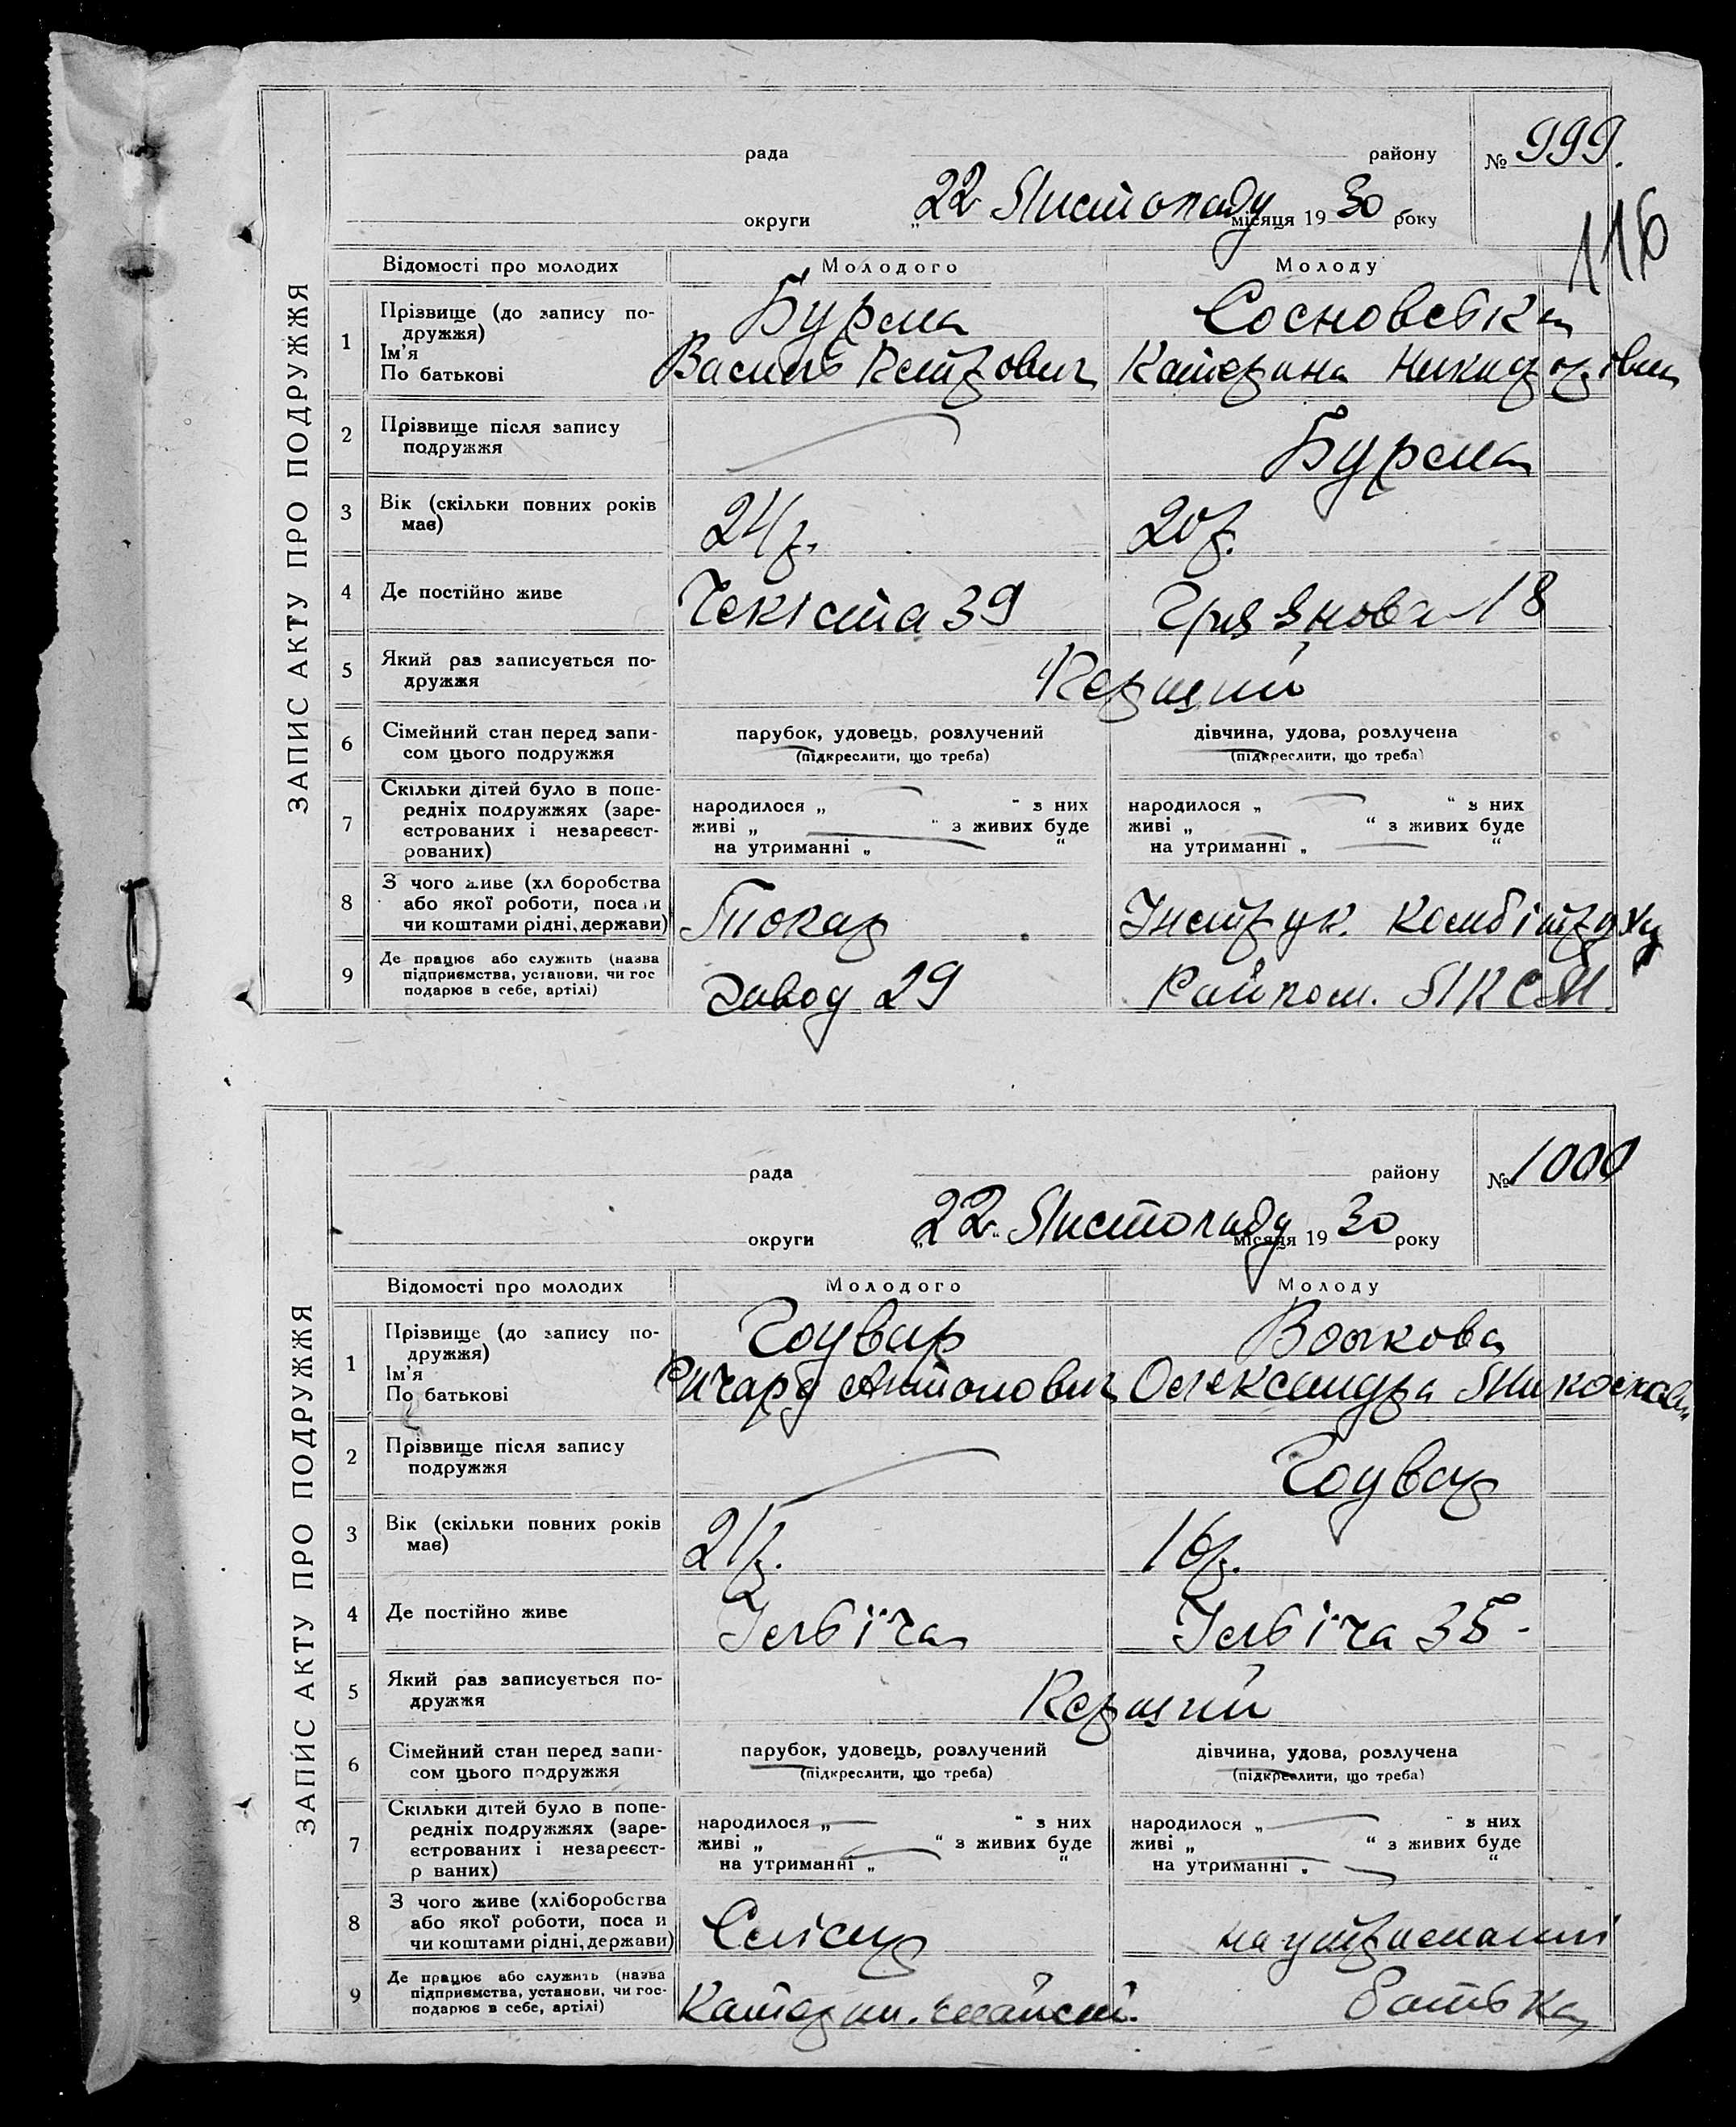 ЗАПИС АКТУ ПРО ПОДРУЖЖЯ
рада району № 999.
116
округи „22 Листопаду місяця 1930 року
Відомості про молодих Молодого Молоду
1 Прізвище (до запису по- Бурма Сосновська
дружжя)
Ім'я Василь Петрович Катерина Никифорівна
По батькові
2 Прізвище після запису Бурма
подружжя
3 Вік (скільки повних років 24р. 20р.
має)
4 Де постійно живе Чекіста 39 18
5 Який раз записується по- Перший
дружжя
6 Сімейний стан перед запи- парубок, удовець, розлучений дівчина, удова, розлучена
сом цього подружжя (підкреслити, що треба) (підкреслити, що треба)
7 Скільки дітей було в попе-
редніх подружжях (заре- народилося „ “ з них народилося „ “ з них
єстрованих і незареєст- живі „ “ з живих буде живі „ “ з живих буде
рованих) на утриманні „ “ на утриманні „ “
8 З чого живе (хл боробства
або якої роботи, поса и Токар Інструк.
чи коштами рідні, держави)
9 Де працює або служить (назва
підприємства, установи, чи гос Завод 29 Райком. ЛКСМ.
подарює в себе, артілі)
ЗАПИС АКТУ ПРО ПОДРУЖЖЯ
рада району № 1000
округи „22“ Листопаду місяця 1930 року
Відомості про молодих Молодого Молоду
1 Прізвище (до запису по- Гоувар Волкова
дружжя)
Ім'я Ричард Антонович Олександра
По батькові
2 Прізвище після запису Гоувар
подружжя
3 Вік (скільки повних років 21р. 16р.
має)
4 Де постійно живе Ільїча Ільїча 35-
5 Який раз записується по- Перший
дружжя
6 Сімейний стан перед запи- парубок, удовець, розлучений дівчина, удова, розлучена
сом цього подружжя (підкреслити, що треба) (підкреслити, що треба)
7 Скільки дітей було в попе-
редніх подружжях (заре- народилося „ “ з них народилося „ “ з них
єстрованих і незареєст- живі „ “ з живих буде живі „ “ з живих буде
р ваних) на утриманні „ “ на утриманні „ “
8 З чого живе (хліборобства
або якої роботи, поса и Слісар на утриманні
чи коштами рідні, держави)
9 Де працює або служить (назва
підприємства, установи, чи гос- Катерин. майст. батька
подарює в себе, артілі)